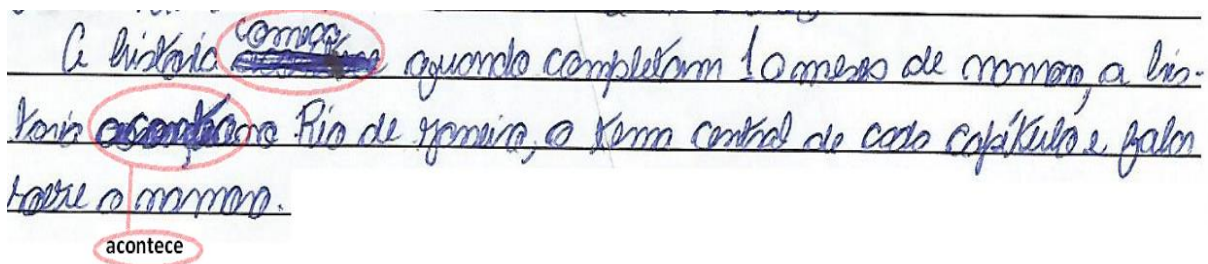 começa
A historia quando completam 10 meses de namoro, a his-
toria acontece no Rio de janeiro, o tema central de cada capítulo e falar
sobre o namoro.
acontece